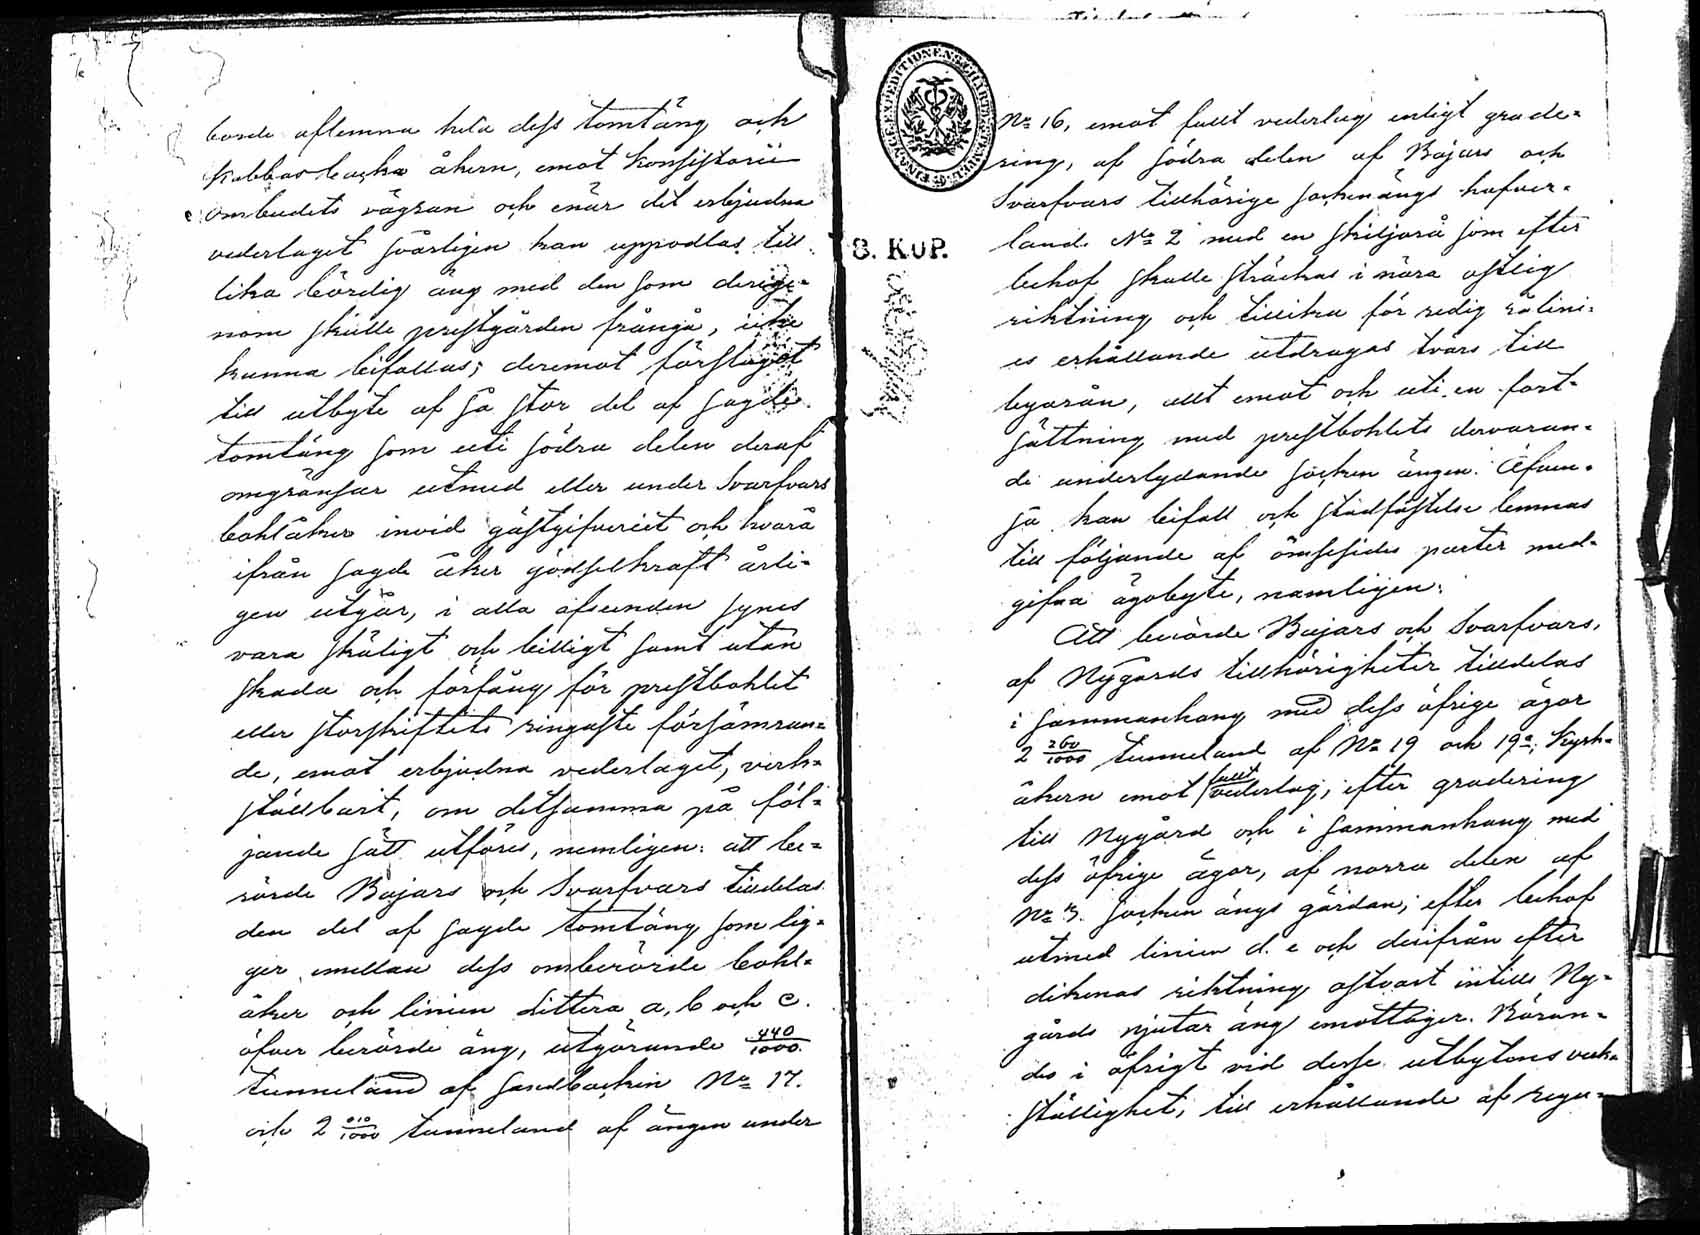 borde aflemna hela dess tomtäng och
Kubbasbacka åkern, emot Konsistorii
ombudets vägran och enär det erbjudna
vederlaget svårligen kan uppodlas till
lika bördig äng med den som derige-
nom skulle prestgården frångå, icke
kunna bifallas; deremot förslaget
till utbyte af så stor del af sagde
tomtäng som uti södra delen deraf
omgränsar utmed eller under Svarfvars
bohlåker invid gästgifveriet och hvarå
ifrån sagde åker gödselkraft årli-
gen utgår, i alla afseenden synes
vara skäligt och billigt samt utan
skada och förfång för prestbohlet
eller storskiftets ringaste försämran-
de, emot erbjudna vederlaget, verk-
ställbart, om detsamma på föl-
jande sätt utföres, nemligen: att be-
rörde Bajars och Svarfvars tilldelas
den del af sagde tomtäng som lig-
ger emellan dess omberörde bohl-
åker och linien littera a, b och c.
öfver berörde äng, utgörande 440/1000
tunneland af sandbacken No 17.
och 2 010/1000 tunneland af ängen under
No 16, emot fullt vederlag enligt grade-
ring, af södra delen af Bajars och
Svarfvars tillhörige sockenängs hafver-
land No 2 med en skiljorå som efter
behof skulle sträckas i nära ostlig
riktning och tillika för redig rålini-
es erhållande utdragas tvärs till
byarån, allt emot och uti en fort-
sättning med prestbohlets dervaran-
de underlydande socken ängen. Äfven-
så kan bifall och stadfästelse lemnas
till följande af ömsesides parter med-
gifna ägobyte, namligen:
Att berörde Bajars och Svarfvars,
af Nygårds tillhörigheter tilldelas
i sammanhang med dess öfrige ägor
2 260/1000 tunneland af No 19 och 19a, Kyrk-
åkern emot fullt vederlag, efter gradering
till Nygård och i sammanhang med
dess öfrige ägor, af norra delen af
No 3. socken ängs gärdan; efter behof
utmed linien d. e och derifrån efter
dikenas riktning ostvart intill Ny-
gårds njutar äng emottager. Böran-
des i öfrigt vid desse utbytens verk-
ställighet, till erhållande af regu-
FINANCE-EXPEDITIONENS
8. KOP.